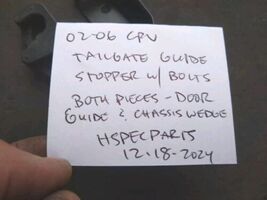 02-06 CRV
TAILGATE GUIDE
STOPPER W/ BOLTS
BOTH PIECES - DOOR
GUIDE & CHASSIS WEDGE
HSPECPARTS
12-18-2024